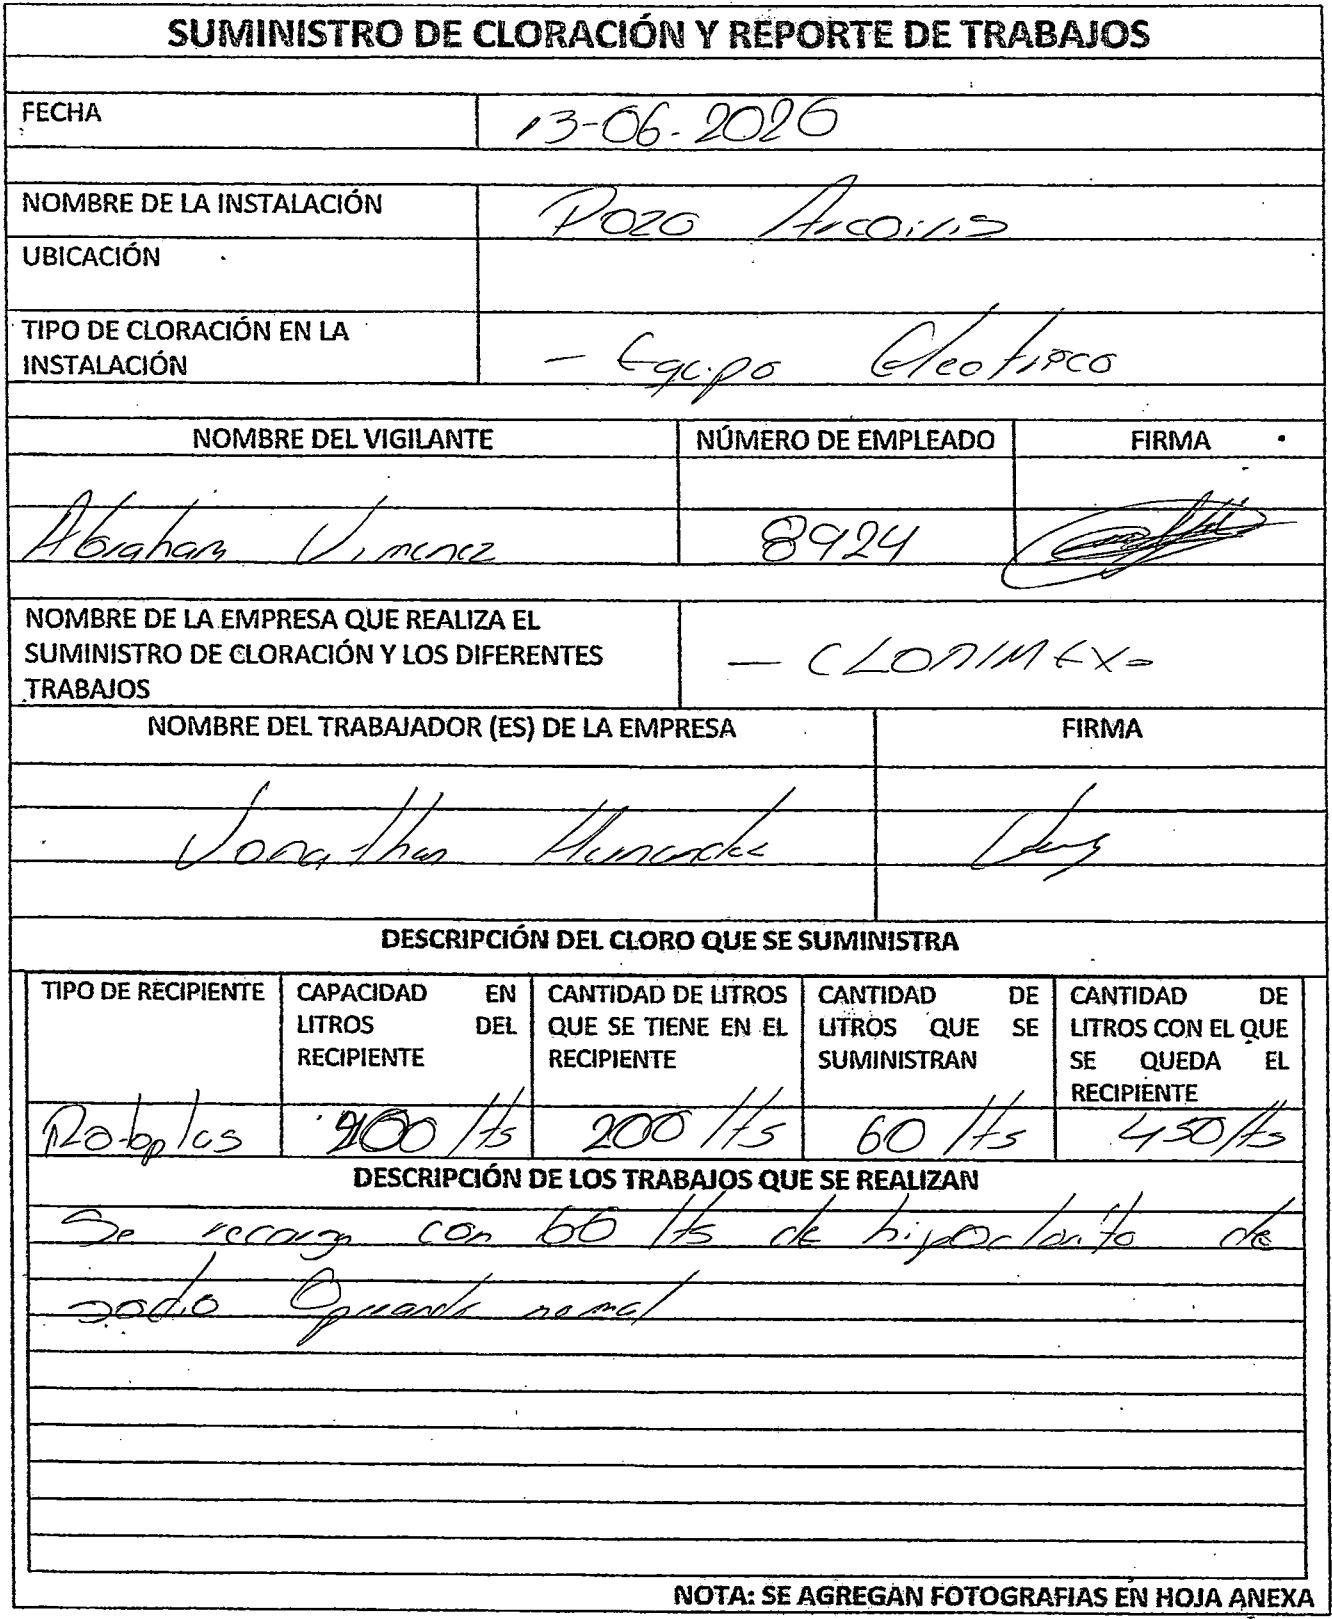 SUMINISTRO DE CLORACIÓN Y REPORTE DE TRABAJOS
FECHA 13-06-2026
NOMBRE DE LA INSTALACIÓN Pozo Arcoiris
UBICACIÓN
TIPO DE CLORACIÓN EN LA
INSTALACIÓN - Equipo Electrico
NOMBRE DEL VIGILANTE NÚMERO DE EMPLEADO FIRMA
Abraham Jimenez 8924
NOMBRE DE LA EMPRESA QUE REALIZA EL
SUMINISTRO DE CLORACIÓN Y LOS DIFERENTES
TRABAJOS - CLORIMEX-
NOMBRE DEL TRABAJADOR (ES) DE LA EMPRESA FIRMA
Jonathan Hernandez
DESCRIPCIÓN DEL CLORO QUE SE SUMINISTRA
TIPO DE RECIPIENTE
CAPACIDAD EN
LITROS DEL
RECIPIENTE
CANTIDAD DE LITROS
QUE SE TIENE EN EL
RECIPIENTE
CANTIDAD DE
LITROS QUE SE
SUMINISTRAN
CANTIDAD DE
LITROS CON EL QUE
SE QUEDA EL
RECIPIENTE
Rotoplas lts 200 lts 60 lts 450 lts
DESCRIPCIÓN DE LOS TRABAJOS QUE SE REALIZAN
Se recarga con lts de hipoclorito de
sodio Operando normal
NOTA: SE AGREGAN FOTOGRAFIAS EN HOJA ANEXA